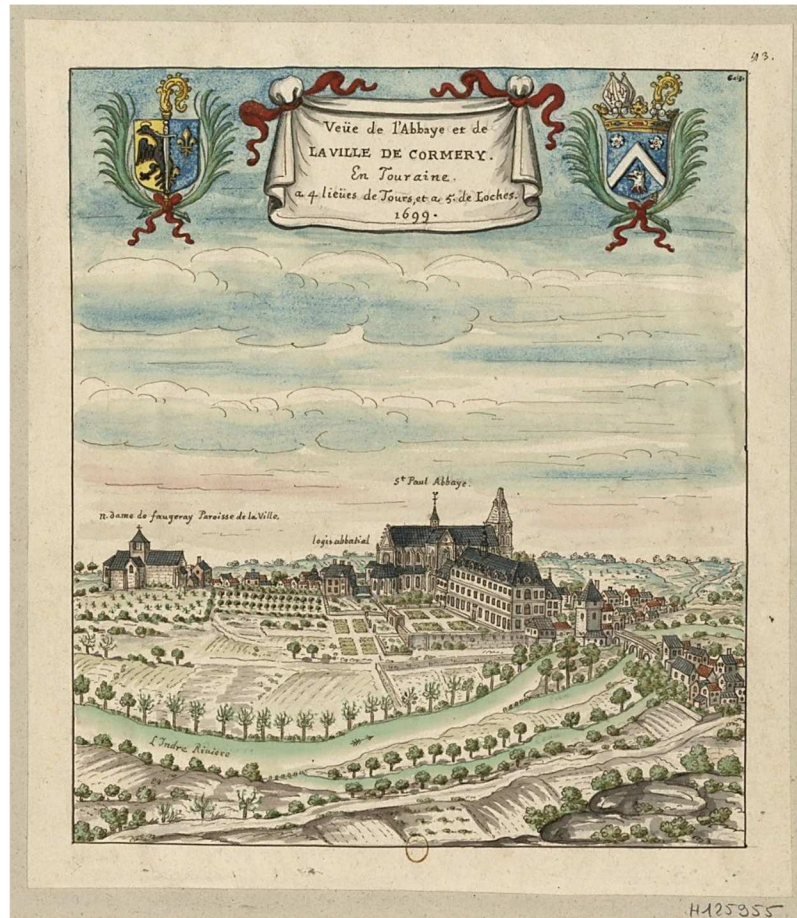 93.
Veüe de l'Abbaye et de
LA VILLE DE CORMERY.
En Touraine.
a 4. lieües de Tours, et a 5. de Loches.
1699.
St Paul Abbaye.
n. dame de faugeray Paroisse de la Ville.
logis abbatial
L'Indre Riviere
H125955